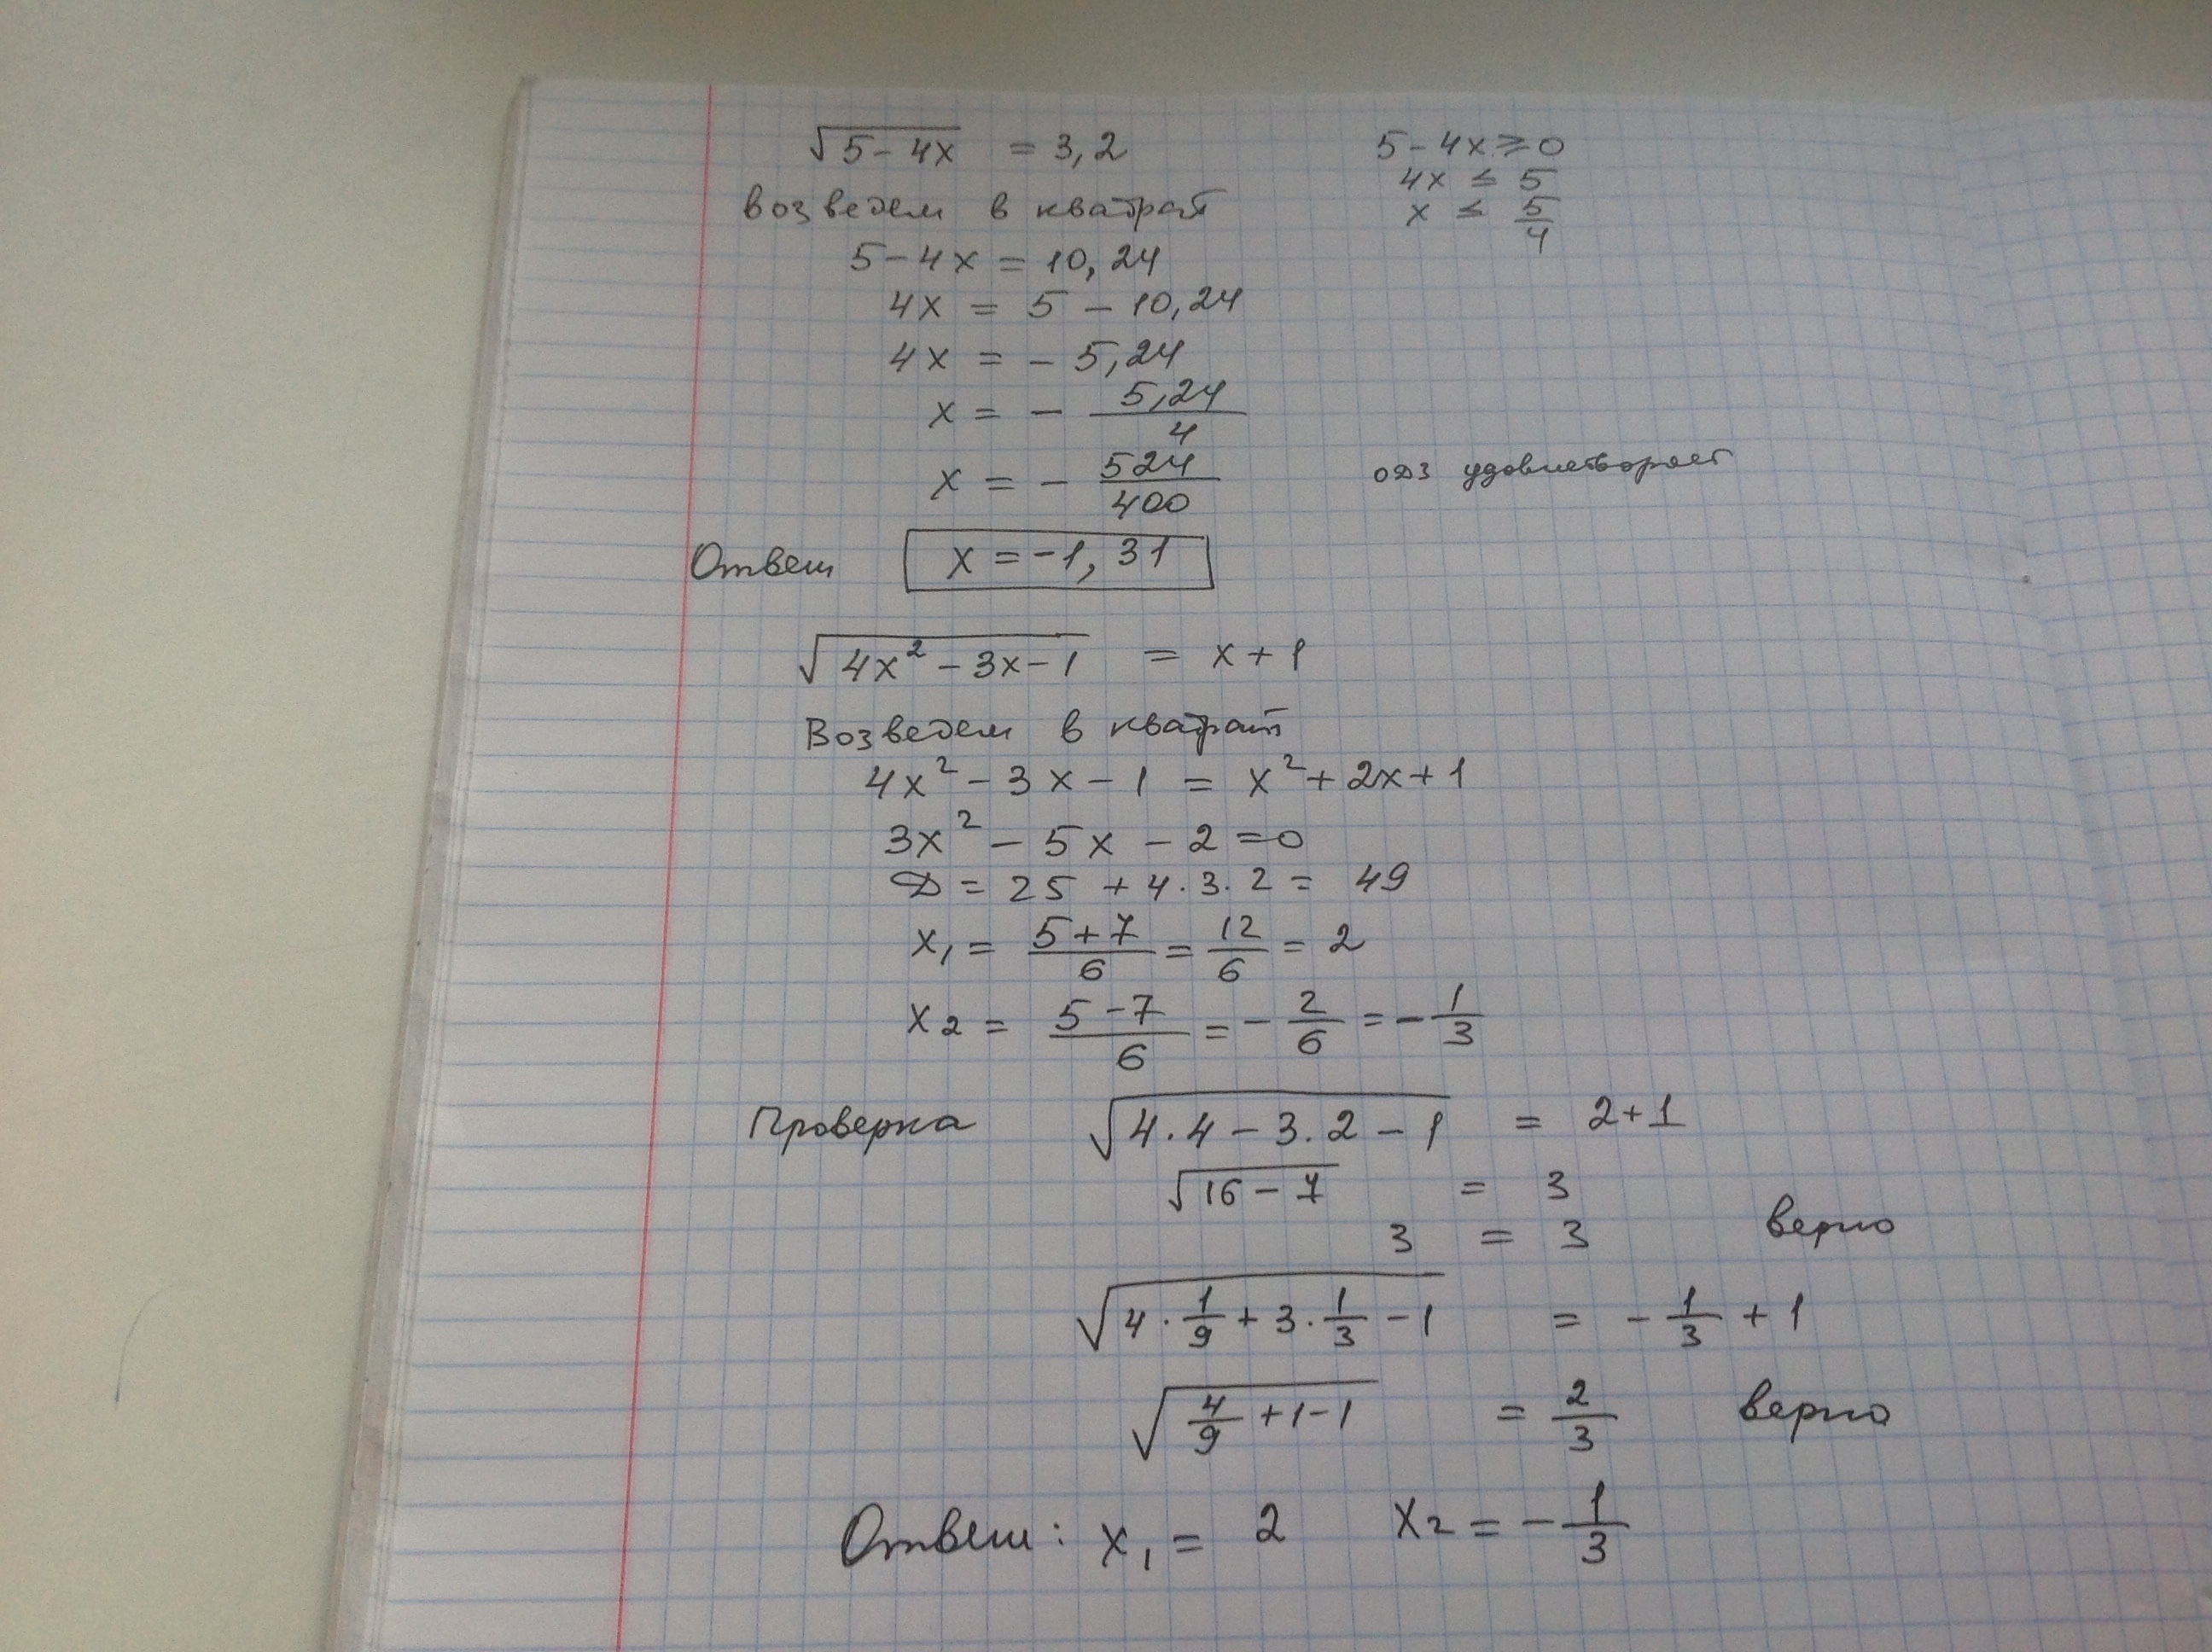 √(5 - 4x) = 3,2
5 - 4x ≥ 0
4x ≤ 5
x ≤ 5/4
возведем в квадрат
5 - 4x = 10,24
4x = 5 - 10,24
4x = - 5,24
x = - 5,24/4
x = - 524/400
одз удовлетворяет
Ответ x = -1,31
√(4x² - 3x - 1) = x + 1
Возведем в квадрат
4x² - 3x - 1 = x² + 2x + 1
3x² - 5x - 2 = 0
D = 25 + 4·3·2 = 49
x₁ = (5+7)/6 = 12/6 = 2
x₂ = (5-7)/6 = - 2/6 = - 1/3
Проверка √(4·4 - 3·2 - 1) = 2+1
√(16 - 7) = 3
3 = 3 верно
√(4·1/9 + 3·1/3 - 1) = - 1/3 + 1
√(4/9 + 1 - 1) = 2/3 верно
Ответ: x₁ = 2 x₂ = - 1/3